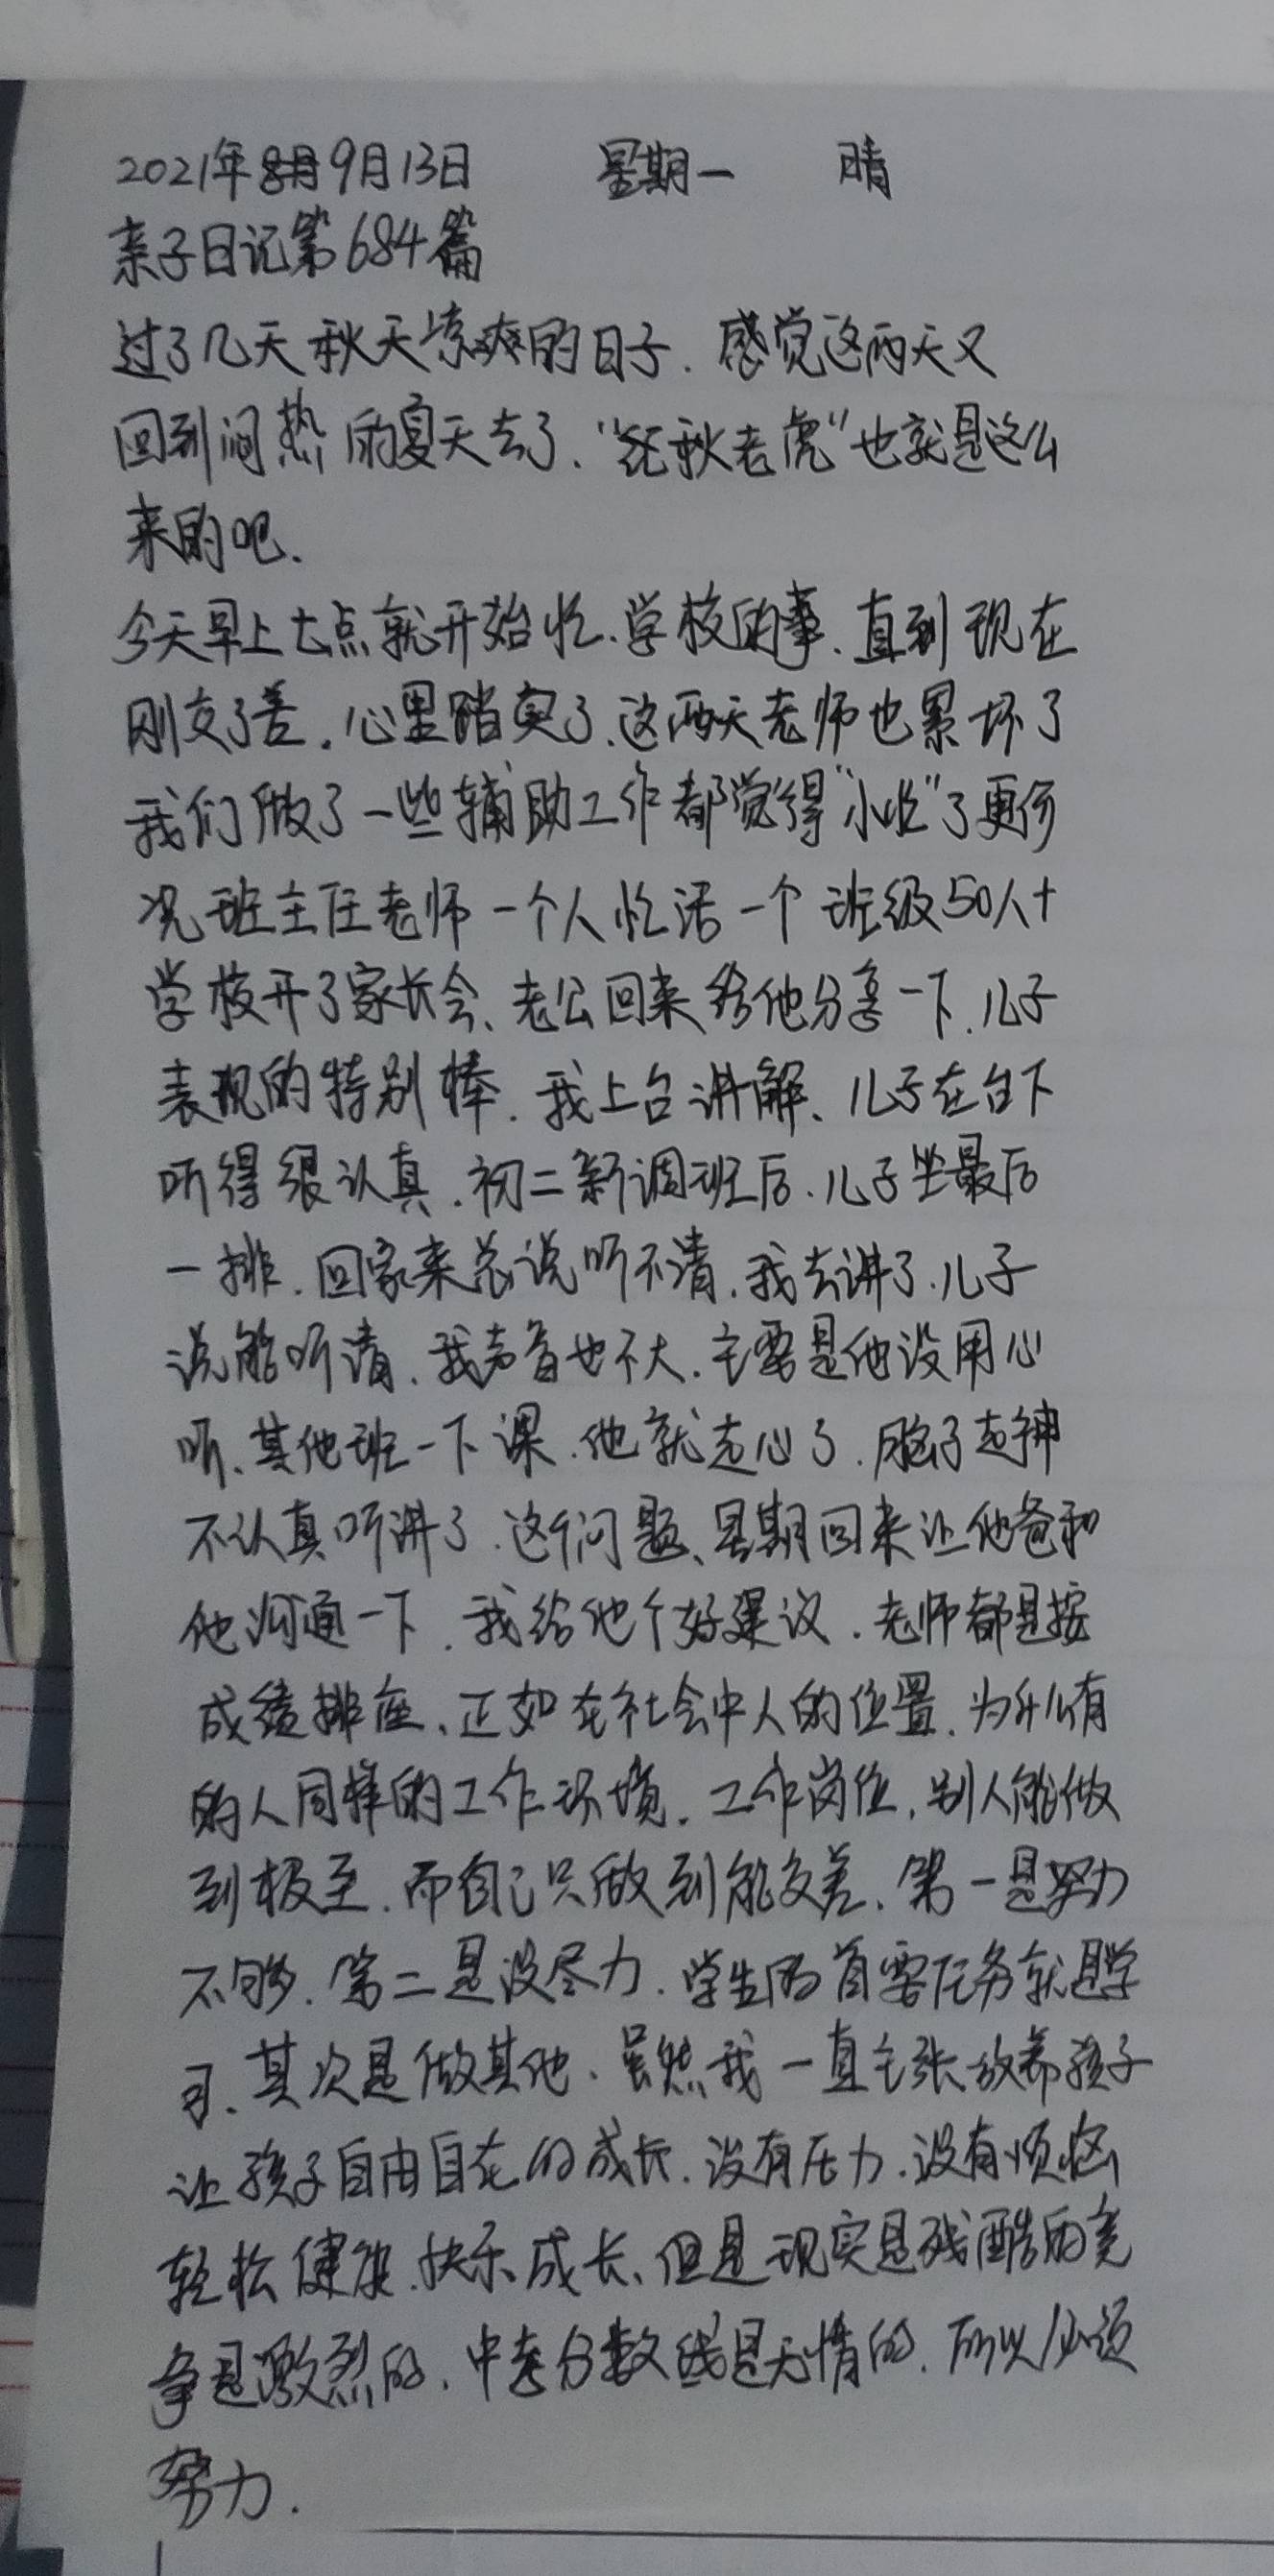 2021年9月13日 星期一 晴
亲子日记第684篇
过了几天秋天凉爽的日子.感觉这两天又
回到闷热的夏天去了.“秋老虎”也就是这么
来的吧.
今天早上七点就开始忙.学校的事.直到现在
刚交了差.心里踏实了.这两天老师也累坏了
我们做了一些辅助工作都觉得“小忙”了更何
况班主任老师一个人忙活一个班级50人+
学校开了家长会、老公回来给他分享一下.儿子
表现的特别棒.我上台讲解、儿子在台下
听得很认真.初二新调班后.儿子坐最后
一排.回家来总说听不清.我去讲了.儿子
说能听清.我声音也不大.主要是他没用心
听、其他班一下课.他就走心了.脑子走神
不认真听讲了.这个问题、星期回来让他爸和
他沟通一下.我给他个好建议.老师都是按
成绩排座、正如在社会中人的位置.为什么有
的人同样的工作环境.工作岗位.别人能做
到极至.而自己只做到能交差.第一是努力
不够.第二是没尽力.学生的首要任务就是学
习、其次是做其他.虽然我一直主张放养孩子
让孩子自由自在的成长.没有压力.没有烦恼
轻松健康.快乐成长、但是现实是残酷的竞
争是激烈的.中考分数线是无情的.所以必须
努力.